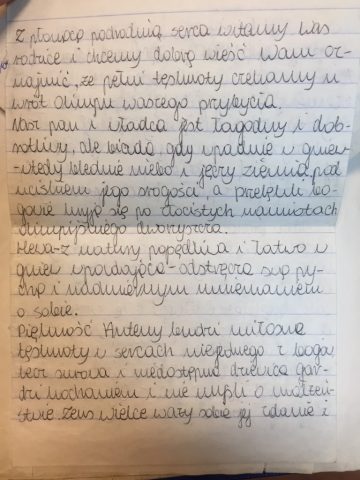 Z płonącą pochodnią serca witamy Was
rodzice i chcemy dobrą wieść Wam oz-
najmić, że pełni tęsknoty czekamy u
wrót Olimpu waszego przybycia.
Nasz pan i władca jest łagodny i dob-
rotliwy, ale biada, gdy wpadnie w gniew
-wtedy blednie niebo i jęczy ziemia pod
uciskiem jego srogości, a przelękli bo-
gowie kryją się po złocistych namiotach
olimpijskiego dworzyszcza.
Hera-z natury popędliwa i łatwo w
gniew wpadająca-odstręcza swą py-
chą i nadmiernym mniemaniem
o sobie.
Piękność Ateny budzi miłosne
tęsknoty w sercach niejednego z bogów,
lecz surowa i niedostępna dziewica gar-
dzi kochaniem i nie myśli o małżeń-
stwie. Zeus wielce waży sobie jej zdanie i